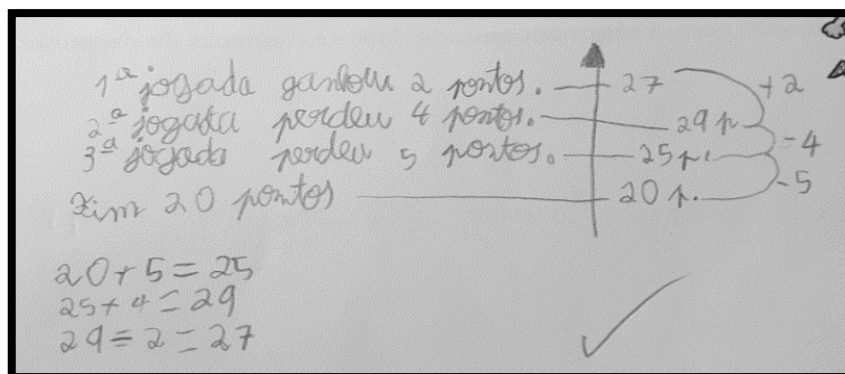 1ª jogada ganhou 2 pontos. 27 +2
2ª jogada perdeu 4 pontos. 29 p. -4
3ª jogada perdeu 5 pontos. 25 p. -5
Fim 20 pontos 20 p.
20+5=25
25+4=29
29=2=27